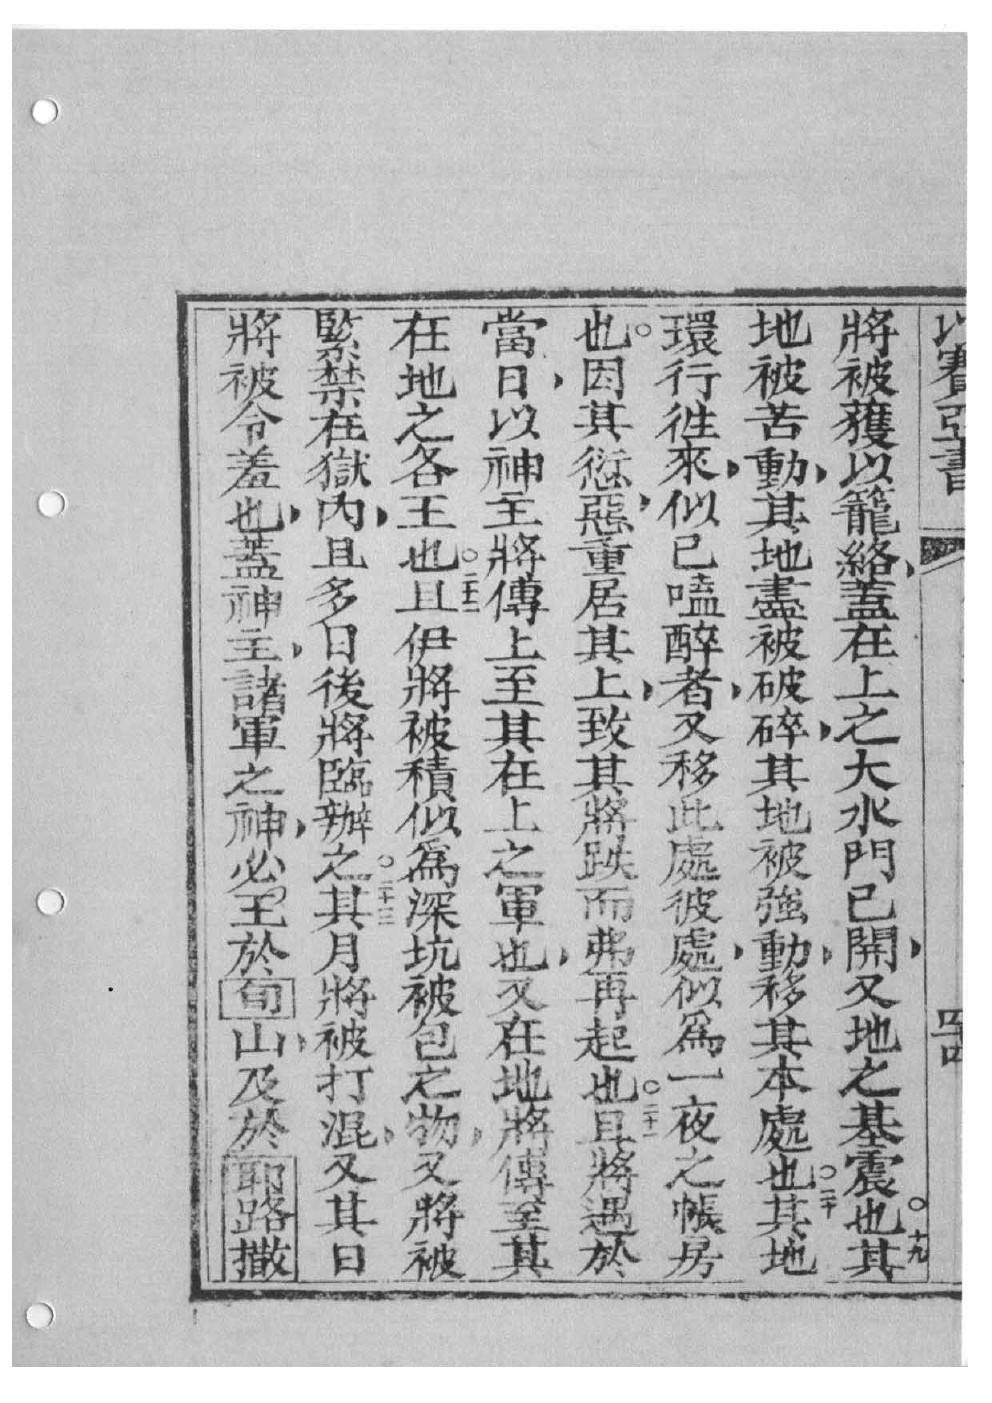 以賽亞書
將被獲以籠絡蓋在上之大水門已開又地之基震也○十九其
地被苦動其地盡被破碎其地被強動移其本處也○二十其地
環行徃來似已嗑醉者又移此處彼處似爲一夜之帳房
也因其愆惡重居其上致其將跌而弗再起也○二十一且將遇於
當日以神主將傳上至其在上之軍也又在地將傳至其
在地之各王也○二十二且伊將被積似爲深坑被包之物又將被
緊禁在獄內且多日後將臨辦之○二十三其月將被打混又其日
將被令羞也蓋神主諸軍之神必王於旬山及於耶路撒